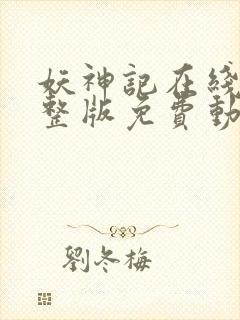 妖神記在綫
整版免費動
劉冬梅